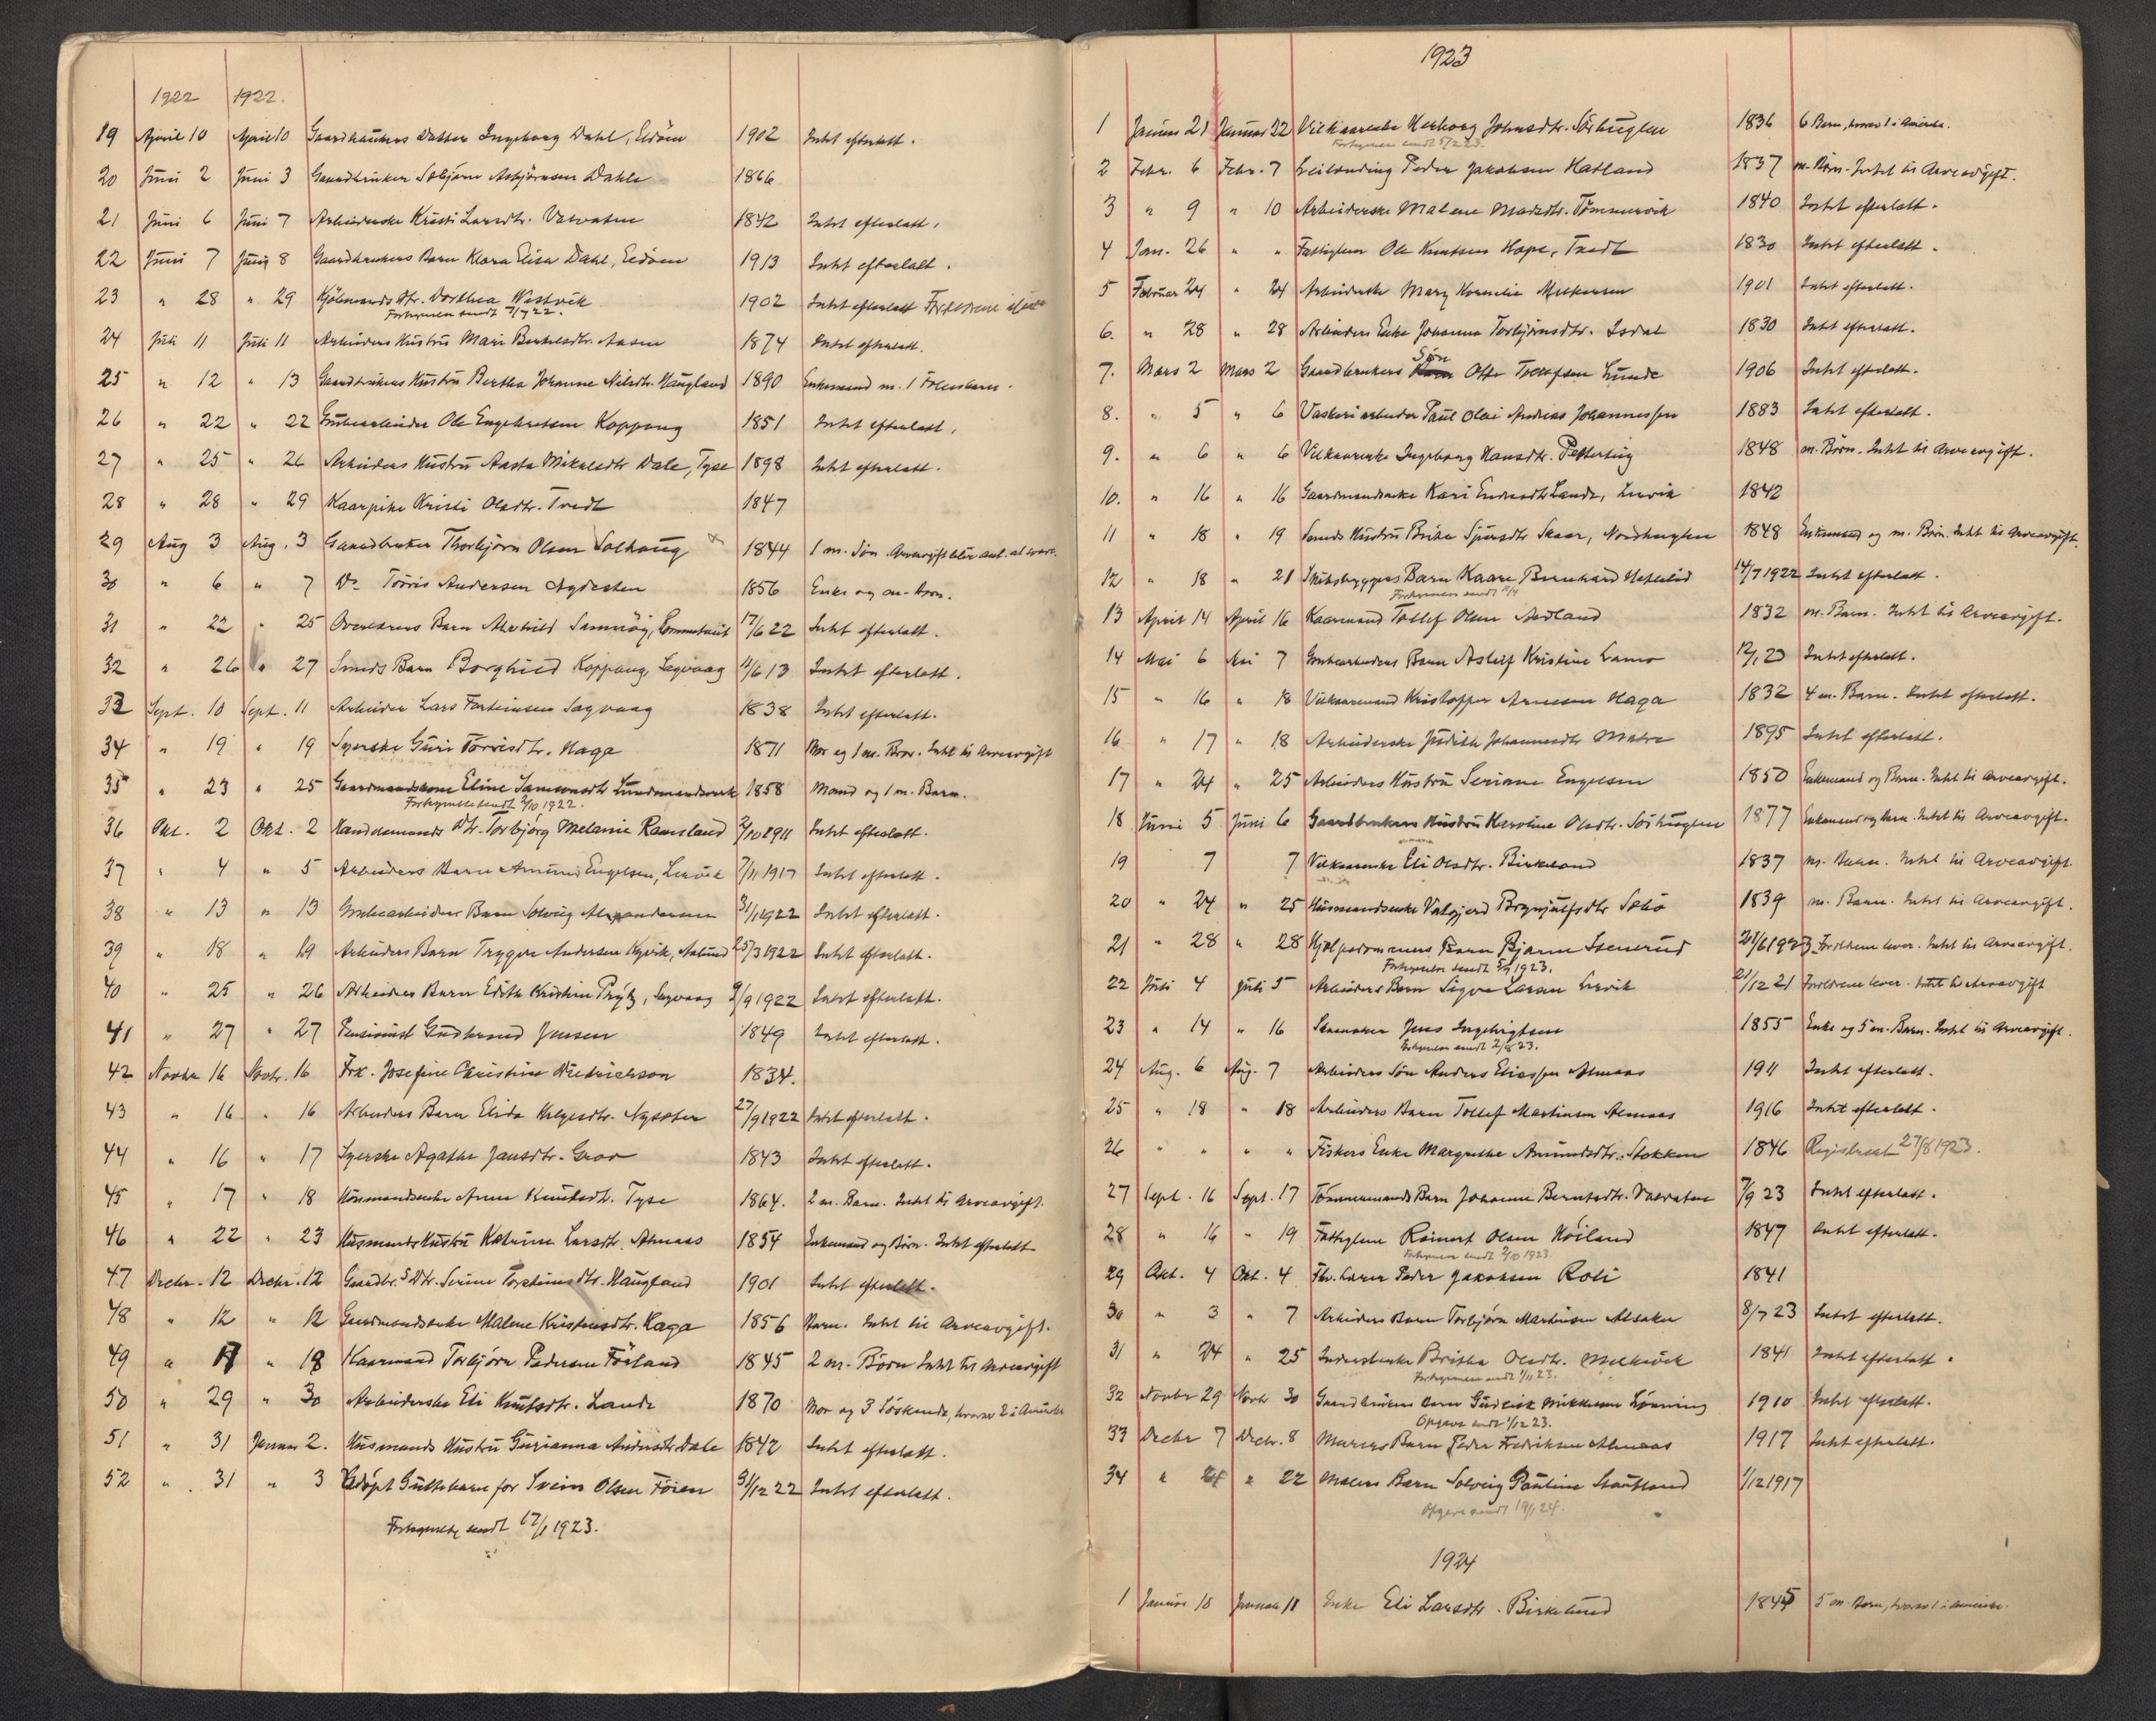 1922 1922.
19 April 10 April 10 Gaardbrukers Datter Ingeborg Dahl, Eidöen 1902 Intet efterlatt.
20 Juni 2 Juni 3 Gaardbruker Asbjörnsen Dahle 1866
21 Juni 6 Juni 7 Arbeiderske Kristi Larsdtr. Vatnaten 1842 Intet efterlatt.
22 Juni 7 Juni 8 Gaardbrukers Barn Klara Elisa Dahl, Eidöen 1913 Intet efterlatt.
23 " 28 " 29 Kjöbmands Dtr. Dorthea Westvik 1902 Intet efterlatt Foreldrene
Fortegnelse sendt 1/7 22.
24 Juli 11 Juli 11 Arbeiders Hustru Mari Aasen 1874 Intet efterlatt.
25 " 12 " 13 Gaardbrukers Hustru Bertha Johanne Nilsdtr. Haugland 1890 Enkemand m. 1
26 " 22 " 22 Grubearbeider Ole Engebretsen Koppang 1851 Intet efterlatt.
27 " 25 " 26 Arbeiders Hustru Aasta Mikalsdtr Dale, Tyse 1898 Intet efterlatt.
28 " 28 " 29 Kaarpike Kristi Olsdtr. Tvedt 1847
29 Aug 3 Aug. 3 Gaardbruker Thorbjörn Olsen Solhaug 1844 1 m. Søn. Arveavgift
30 " 6 " 7 Do Torris Andersen Agdesten 1856 Enke og m. Børn.
31 " 22 " 25 Barn Samnöy, 17/6 22 Intet efterlatt.
32 " 26 " 27 Smeds Barn Borghild Koppang, Sagvaag 11/6 13 Intet efterlatt.
33 Sept. 10 Sept. 11 Arbeider Lars Sagvaag 1838 Intet efterlatt.
34 " 19 " 19 Syerske Guri Torrisdtr. Haga 1871 Mor og 1 m. Bror. Intet til Arveavgift
35 " 23 " 25 Eline Samsonsdtr 1858 Mand og 1 m. Barn.
Fortegnelse sendt 2/10 1922.
36 Okt. 2 Okt. 2 Handelsmands Dtr. Torbjörg Melanie Ravnsland 2/10 1911 Intet efterlatt.
37 " 4 " 5 Arbeiders Barn Amund Engelsen, Lervik 7/11 1917 Intet efterlatt.
38 " 13 " 13 Grubearbeiders Barn Solveig Alexandersen 31/1 1922 Intet efterlatt.
39 " 18 " 19 Arbeiders Barn Trygve Andersen 25/3 1922 Intet efterlatt.
40 " 25 " 26 Arbeiders Barn Edith Kristine Prytz, Sagvaag 9/9 1922 Intet efterlatt.
41 " 27 " 27 Pensionist Gudbrand Jensen 1849 Intet efterlatt.
42 Novbr 16 Novbr. 16 Frk. Josefine Christine 1834.
43 " 16 " 16 Arbeiders Barn Elida Helgesdtr. Nysæter 27/9 1922 Intet efterlatt.
44 " 16 " 17 Syerske Agathe Jansdtr. Grov 1843 Intet efterlatt.
45 " 17 " 18 Husmandsenke Anna Knutsdtr. Tyse 1864. 2 m. Barn. Intet til Arveavgift.
46 " 22 " 23 Husmands Hustru Katrine Larsdtr. Almaas 1854 Enkemand og Børn. Intet efterlatt
47 Decbr. 12 Decbr. 12 Gaardbr.s Dtr. Serine Haugland 1901 Intet efterlatt.
48 " 12 " 12 Gaardmandsenke Malene Kristensdtr. Haga 1856 Barn. Intet til Arveavgift.
49 " 17 " 18 Kaarmand Torbjörn Pedersen Föiland 1845 2 m. Børn Intet til Arveavgift
50 " 29 " 30 Arbeiderske Eli Knutsdtr. Lande 1870 Mor og 3 Söskende, hvorav 2 i Amerika
51 " 31 Januar 2. Husmands Hustru Gurianna Dale 1842 Intet efterlatt.
52 " 31 " 3 Udöpt Guttebarn for Svein Olsen Föien 31/12 22 Intet efterlatt.
Fortegnelse sendt 17/1 1923.
1923
1 Januar 21 Januar 22 Vilkaarenke Herborg Johnsdtr. Sörhuglen 1836 6 Barn, hvorav 1 i Amerika.
Fortegnelse sendt 5/2 23.
2 Febr. 6 Febr. 7 Leilending Peder Jakobsen Hatland 1837 m. Börn. Intet til Arveavgift.
3 " 9 " 10 Arbeiderske Malene Madsdtr. Tömmervik 1840 Intet efterlatt.
4 Jan. 26 " " Fattiglem Ole Knutsen Hope, Tvedt 1830 Intet efterlatt.
5 Februar 24 " 24 Arbeiderske Mary Kornelie Mikkelsen 1901 Intet efterlatt.
6. " 28 " 28 Arbeiders Enke Johanna Torbjörnsdtr. Isdal 1830 Intet efterlatt.
7. Mars 2 Mars 2 Gaardbrukers Søn Otto Lunde 1906 Intet efterlatt.
8. " 5 " 6 Vaskeriarbeider Paul Olai Andreas Johannessen 1883 Intet efterlatt.
9. " 6 " 6 Vilkaarenke Ingeborg Hansdtr. Petterteig 1848 m. Börn. Intet til Arveavgift.
10. " 16 " 16 Gaardmandsenke Kari Lande, Lervik 1842
11 " 18 " 19 Smeds Hustru Brita Sjursdtr Skaar, Nordhuglen 1848 Enkemand og m. Börn. Intet til Arveavgift.
12 " 18 " 21 Skibsbyggers Barn Kaare Bernhard 14/7 1922 Intet efterlatt.
Fortegnelse sendt
13 April 14 April 16 Kaarmand Tollef Olsen Aadland 1832 m. Barn. Intet til Arveavgift.
14 Mai 6 Mai 7 Grubearbeiders Barn Aslief Kristine Lamo 12/1 23 Intet efterlatt.
15 " 16 " 18 Vilkaarsmand Kristoffer Arnesen Haga 1832 4 m. Barn. Intet efterlatt.
16 " 17 " 18 Arbeiderske Judith Johannesdtr Matre 1895 Intet efterlatt.
17 " 24 " 25 Arbeiders Hustru Seriane Engelsen 1850 Enkemand og Barn. Intet til Arveavgift.
18 Juni 5 Juni 6 Gaardbrukers Hustru Karoline Olsdtr. Sörhuglen 1877 Enkemand og barn. Intet til Arveavgift.
19 7 7 Vilkaarenke Eli Olsdtr. Birkeland 1837 m. Barn. Intet til Arveavgift.
20 " 24 " 25 Husmandsenke Valgjerd Brynjulfsdtr 1839 m. Barn. Intet til Arveavgift.
21 " 28 " 28 Barn Bjarne Isenerud 21/6 1923 Foreldrene lever. Intet til Arveavgift.
Fortegnelse sendt 5/7 1923.
22 Juli 4 Juli 5 Arbeiders Barn Sigva Larsen Lervik 21/12 21 Foreldrene lever. Intet til Arveavgift
23 " 14 " 16 Skomaker Jens Ingebrigtsen 1855 Enke og 5 m. Barn. Intet til Arveavgift.
Fortegnelse sendt 2/8 23.
24 Aug. 6 Aug. 7 Arbeiders Søn Anders Eliassen Almaas 1911 Intet efterlatt.
25 " 18 " 18 Arbeiders Barn Tollef Martinsen Almaas 1916 Intet efterlatt.
26 " " " " Fiskers Enke Margrethe Amundsdtr. Stokken 1846 Registrert 27/8 1923.
27 Sept. 16 Sept. 17 Tömmermands Barn Johanne Berntsdtr. Vatnaten 7/9 23 Intet efterlatt.
28 " 16 " 19 Fattiglem Reinert Olsen Höiland 1847 Intet efterlatt.
Fortegnelse sendt 2/10 1923.
29 Okt. 4 Okt. 4 Fhv. Lærer Peder Jakobsen Roti 1841
30 " 3 " 7 Arbeiders Barn Torbjörn Martinsen Alsaker 8/7 23 Intet efterlatt.
31 " 24 " 25 Inderstenke Britha Olsdtr. Melkevik 1841 Intet efterlatt.
Fortegnelse sendt 1/11 23.
32 Novbr 29 Novbr 30 Gaardbrukers Barn Gudleik Mikkelsen Lönning 1910 Intet efterlatt.
Opgave sendt 1/12 23.
33 Decbr 7 Decbr. 8 Barn Peder Fredriksen Almaas 1917 Intet efterlatt.
34 " 21 " 22 Malers Barn Solveig Pauline Stautland 1/12 1917
Opgave sendt 19/1 24.
1924
1 Januar 18 Januar 18 Enke Eli Larsdtr. Birkelund 1845 5 m. Barn, hvorav 1 i Amerika.